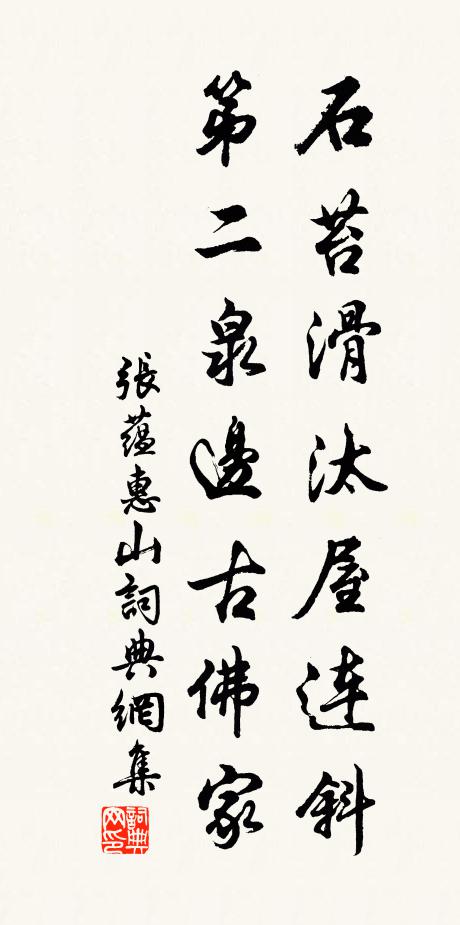 石苔滑汰屋連斜
第二泉邊古佛家
張蘊惠山詞典網集
詞典
网印